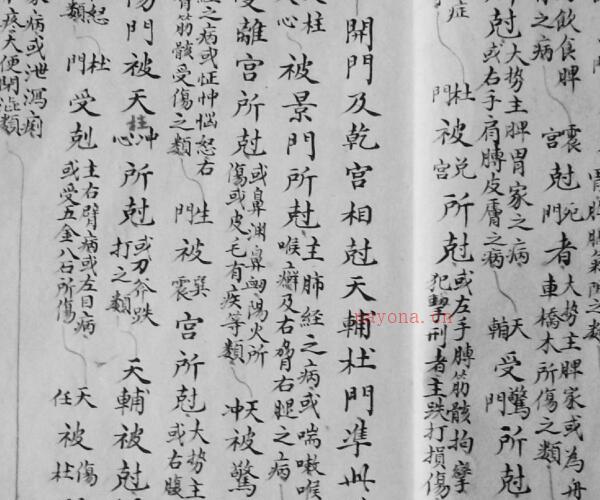 胃脾肺
飲食脾 震宮尅死門者 大势主脾家或為舟車橋木所傷之類
之病 大势主脾胃家之病或右手肩膊皮膚之病 天輔受驚門所尅
症 杜門被兌宮所尅 或左手膊筋骸拘攣犯擊刑者主跌打損傷
開門及乾宮相尅天輔杜門準此
天柱心被景門所尅 主肺經之病或喘嗽喉喉癬及右脅右腿之病
受離宮所尅 或鼻渊鼻衄陽火所傷或皮毛有疾等類 天冲被驚
經之病或怔忡惱怒右有筋骸受傷之類 生門被巽震宮所尅 大势主或右腹
傷門被天柱心所尅 冲 或刀斧跌打之類 天輔被尅
怒類 杜門受尅 主右臂病或左目病或受五金八石所傷 天任被傷杜
家病或泄瀉痢疾大便閉澁類
nayona.cn